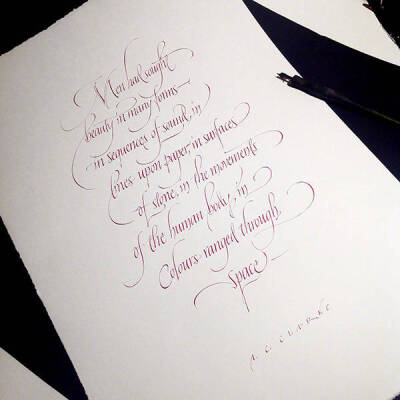 Men had sought
beauty in many forms—
in sequences of sound, in
lines upon paper, in surfaces
of stone, in the movements
of the human body, in
colours ranged through
space—
A. C. CLARKE